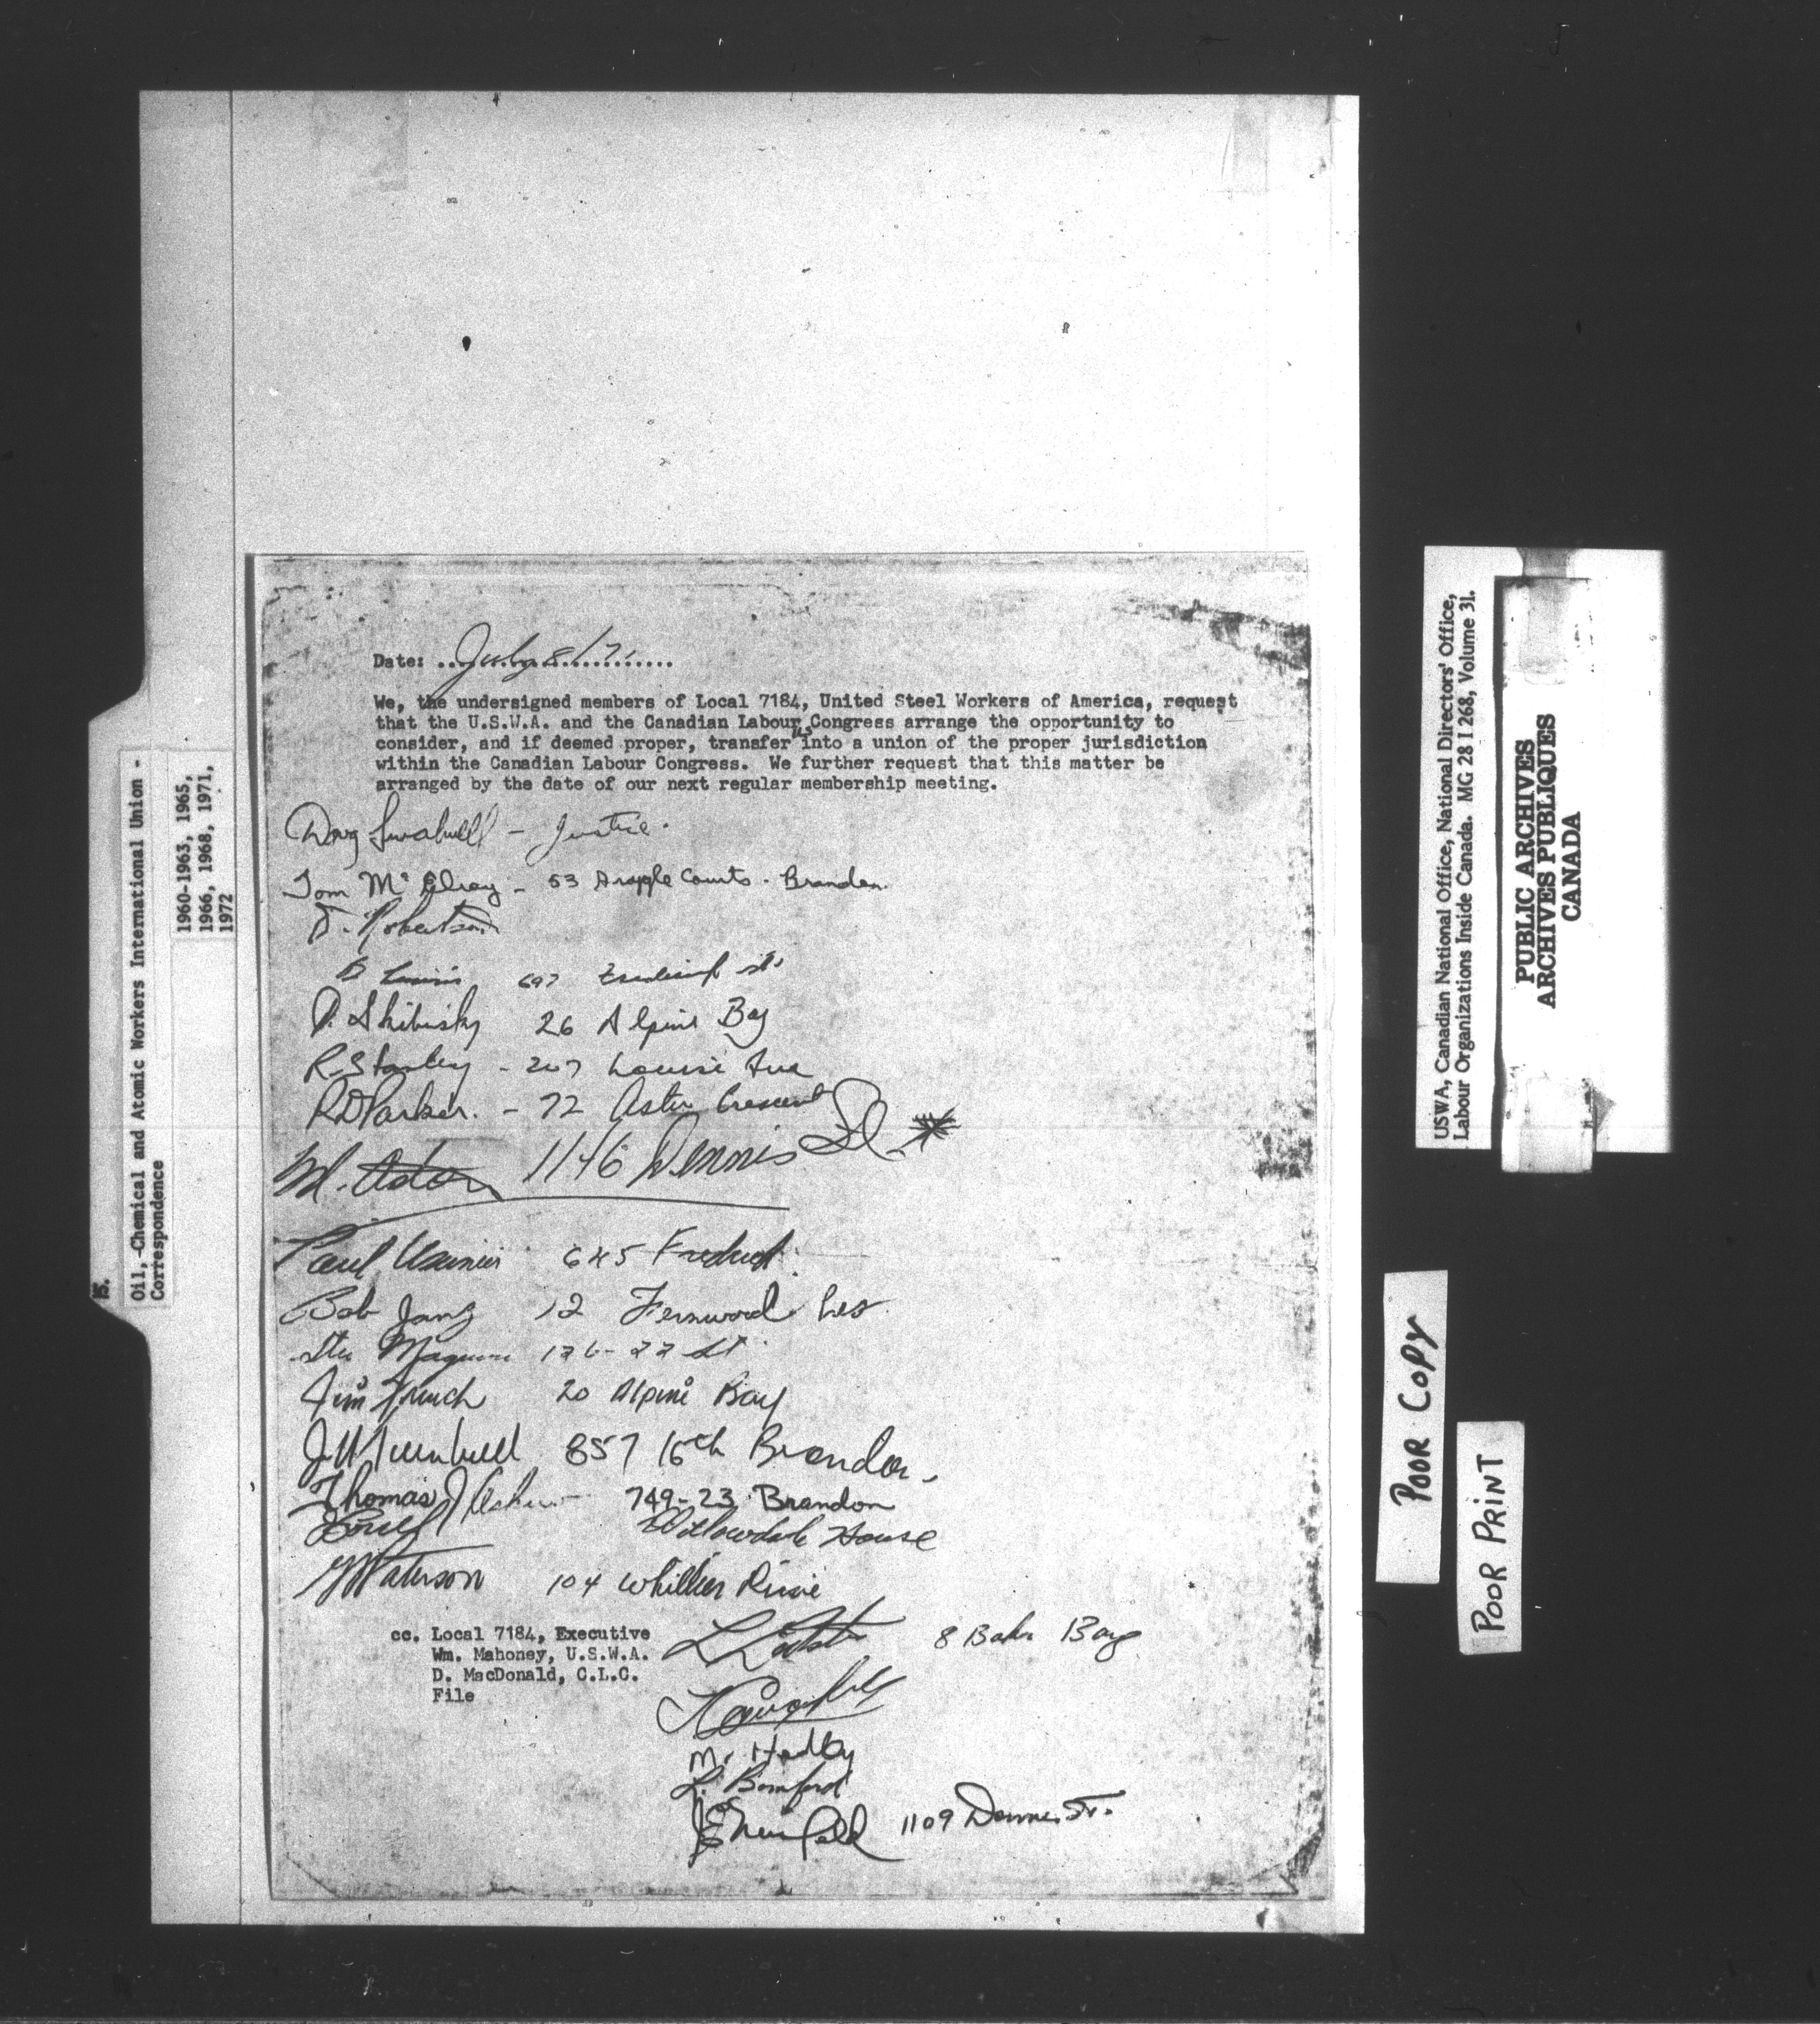 15.
Oil,-Chemical and Atomic Workers International Union -
Correspondence
1960-1963, 1965,
1966, 1968, 1971,
1972
Date: ..July 8/71............
We, the undersigned members of Local 7184, United Steel Workers of America, request
that the U.S.W.A. and the Canadian Labour Congress arrange the opportunity to
consider, and if deemed proper, transfer us into a union of the proper jurisdiction
within the Canadian Labour Congress. We further request that this matter be
arranged by the date of our next regular membership meeting.
Doug - Justice.
Tom McElroy - 53 Argyle Courts - Brandon.
Robertson
697 Frederick St
P. Skibisky 26 Alpine Bay
R. Stanley - 207 Louise Ave
R D Parker. - 72 Aster Crescent
M. 1146 Dennis St.
Paul 645 Frederick
Bob Janz 12 Fernwood Cres
Stu 126-22 St.
Jim French 20 Alpine Bay
J. W. Turnbull 857 16th Brandon
Thomas J 749-23 Brandon
Willowdale House
Paterson 104 Whillier Drive
cc. Local 7184, Executive
Wm. Mahoney, U.S.W.A.
D. MacDonald, C.L.C.
File
8 Baker Bay
M. Hedley
L. Bamford
1109 Dennis St.
USWA, Canadian National Office, National Directors' Office,
Labour Organizations Inside Canada. MG 28 I 268, Volume 31.
PUBLIC ARCHIVES
ARCHIVES PUBLIQUES
CANADA
POOR COPY
POOR PRINT